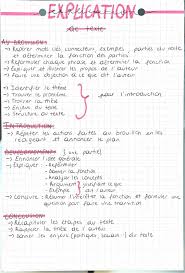 EXPLICATION
de texte
AU BROUILLON
- Repérer mots clés, connecteurs, exemples, parties du texte
et déterminer la fonction des parties
- Reformuler chaque phrase et déterminer la fonction
- Expliquer et illustrer les propos de l'auteur
- Faire une objection à ce que dit l'auteur
- Identifier le thème
- Trouver le problème
- Trouver la thèse
- Enjeu du texte
- Structure du texte
pour l'introduction
INTRODUCTION
- Reporter les actions faites au brouillon en les
rédigeant et annoncer le plan
DEVELOPPEMENT (une partie)
- Enoncer l'idée générale
- Expliquer: - Reformuler
- Donner le sens
- Analyser les concepts
- Argument justifiant ce que
- Exemple dit l'auteur
- Conclure: Résumer l'intérêt, la fonction et formuler une
question pour faire une transition
CONCLUSION
- Rappeler les étapes du texte
- Rappeler la thèse de l'auteur
- Donner les enjeux (politiques, sociaux) du texte